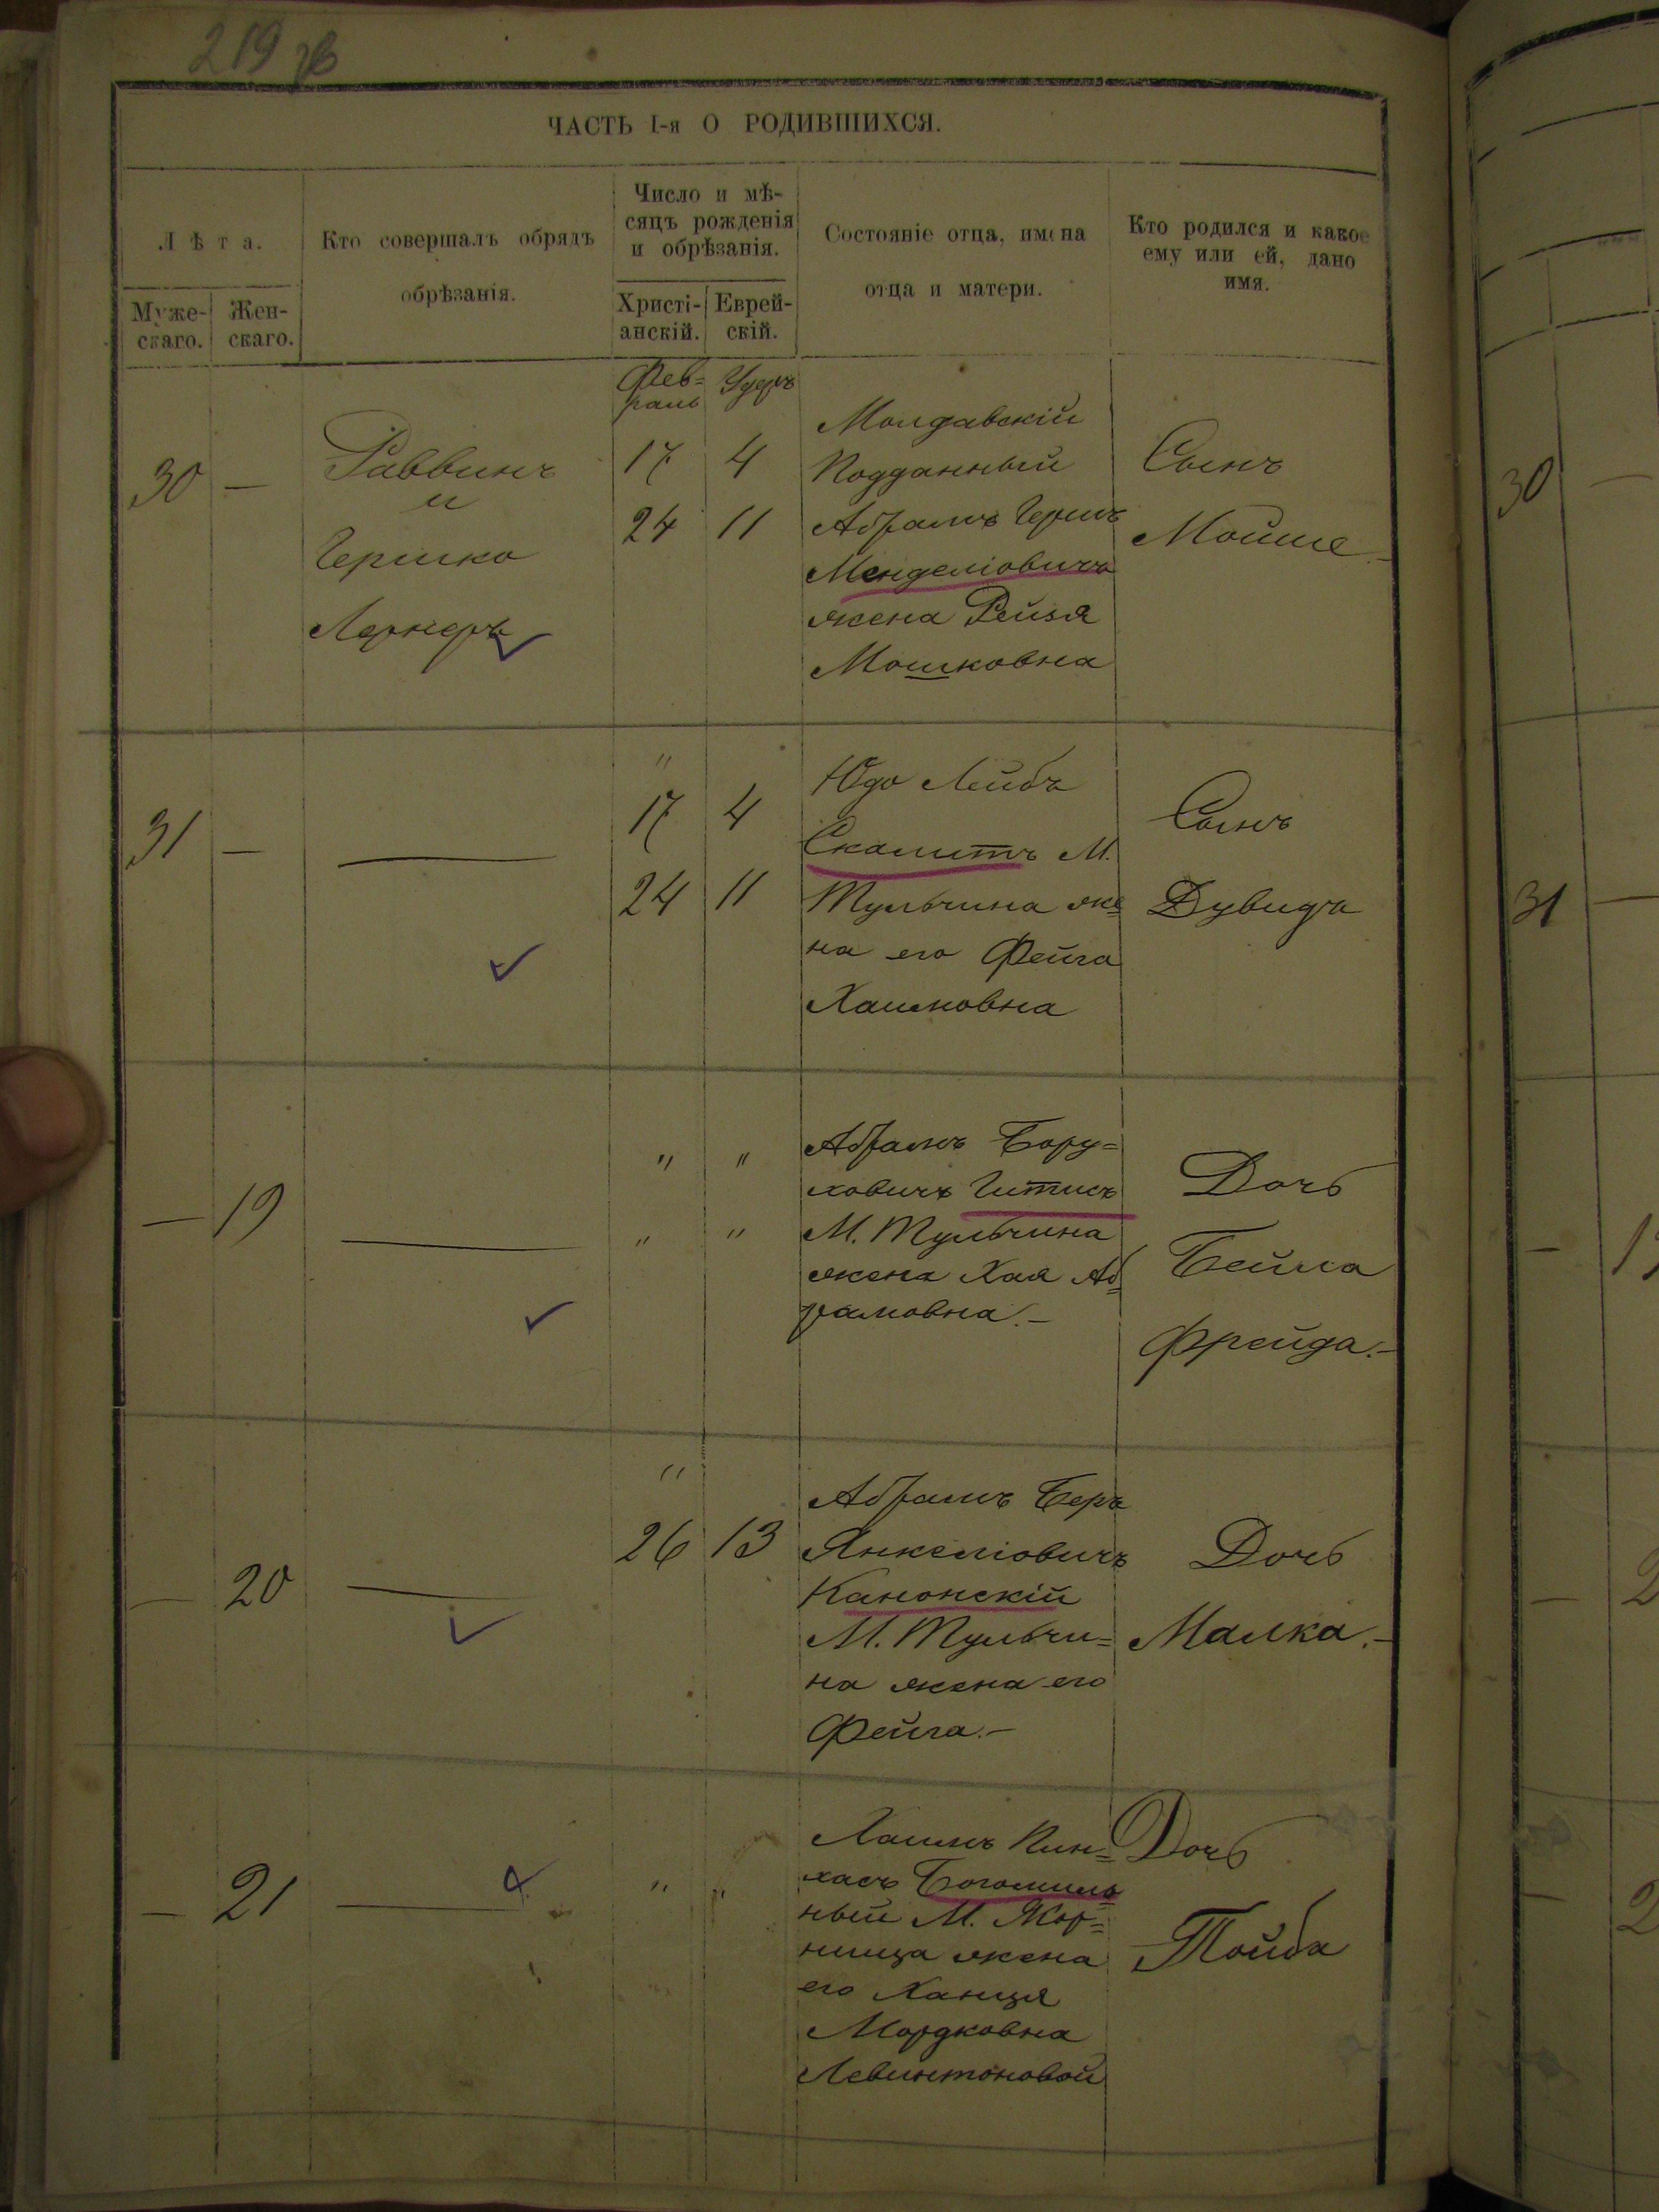 219 зв
ЧАСТЬ I-я О РОДИВШИХСЯ.
Лѣта.
Муже-
скаго.
Жен-
скаго.
Кто совершалъ обрядъ
обрѣзанія.
Число и мѣ-
сяцъ рожденія
и обрѣзанія.
Христі-
анскій.
Еврей-
скій.
Состояніе отца, имена
отца и матери.
Кто родился и какое
ему или ей, дано
имя.
Фев=
раль
30
—
Раввинъ
и
Гершко
Лернеръ
17 4
24 11
Молдавскій
Подданный
Абрамъ Гершъ
Менделіовичъ
жена Рейзя
Мошковна
Сынъ
Мойше
31
—
"
17 4
24 11
Юдо Лейбъ
М.
Тульчина же=
на его Фейга
Хаимовна
Сынъ
Дувидъ
—
19
" "
" "
Абрамъ Бору=
ховичъ Гитисъ
М. Тульчина
жена Хая Аб=
рамовна.—
Дочь
Бейла
Фрейда.—
—
20
"
26 13
Абрамъ Беръ
Янкеліовичъ
Канонскій
М. Тульчи=
на жена его
Фейга.—
Дочь
Малка.—
—
21
" "
Хаимъ Пин=
хасъ Богомиль=
ный М. Жор=
нища жена
его Ханця
Мордковна
Левинтоновой
Дочь
Тойба
30
—
31
—
—
—
—